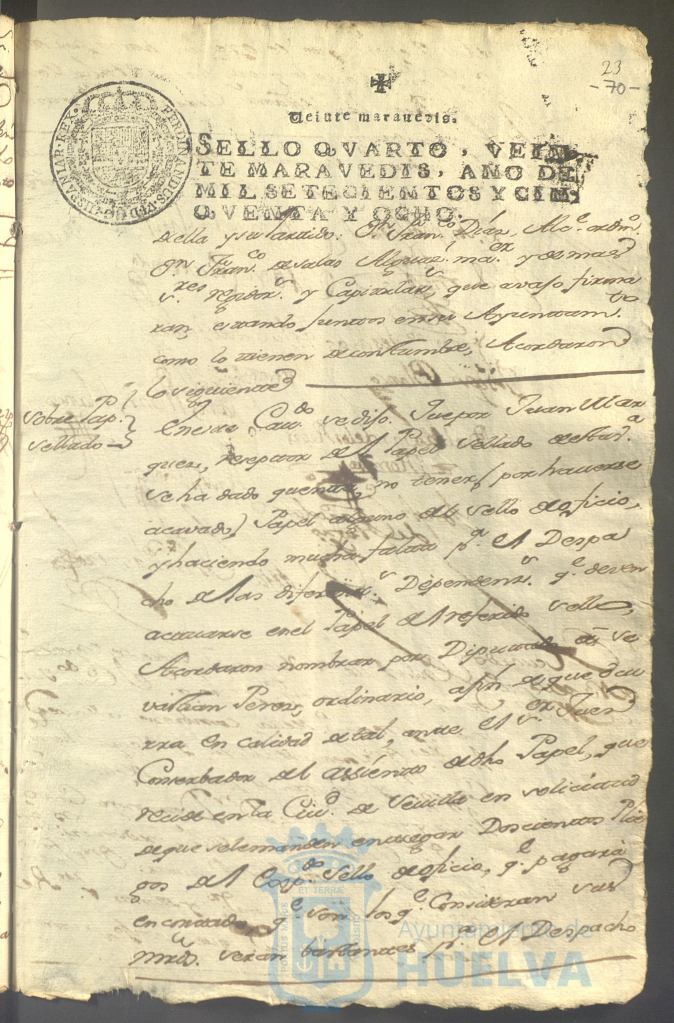 23
-70-
Veinte maravedis.
SELLO QVARTO, VEIN
TE MARAVEDIS, AÑO DE
MIL SETECIENTOS Y CIN,
QVENTA Y OCHO.
FERDINANDUS VI D G HISPANIAR REX
della y su Partido: Dn. Franco. Diaz, Alce. ordino.
Dn. Franco. de salas Alguaz.l maor. y demas
sres. rexidors. y Capitulars. que avajo firma
ran, estando juntos en su Ayuntamto.
como lo tienen de costumbre, Acordaron
lo siguiente
sobre Pap.l
sellado
En este Cavdo. se dijo: Que por Juan Mar
quez, rezeptor del Papel sellado
se ha dado quenta, no tener, por haverse
acavado, Papel alguno del sello de oficio,
y haciendo mucha falta pa. el Despa
cho de las diferents. Dependens. qe. deven
actuarse en el Papel del referido sello,
Acordaron nombrar por Diputado a
vastian Perez, ordinario, afin de que
rra en calidad de tal, ante el sr.
Conserbador del assiento de dho Papel, que
recide en la Ciud. de Sevilla en solicitud
de que se le manden entregar Doscientos Plie
gos del Sello de oficio, qe. pagará
en contado, qe. son los qe. Consideran sus
mrds. seran bastantes pa. el Despacho
Ayuntamiento de
HUELVA